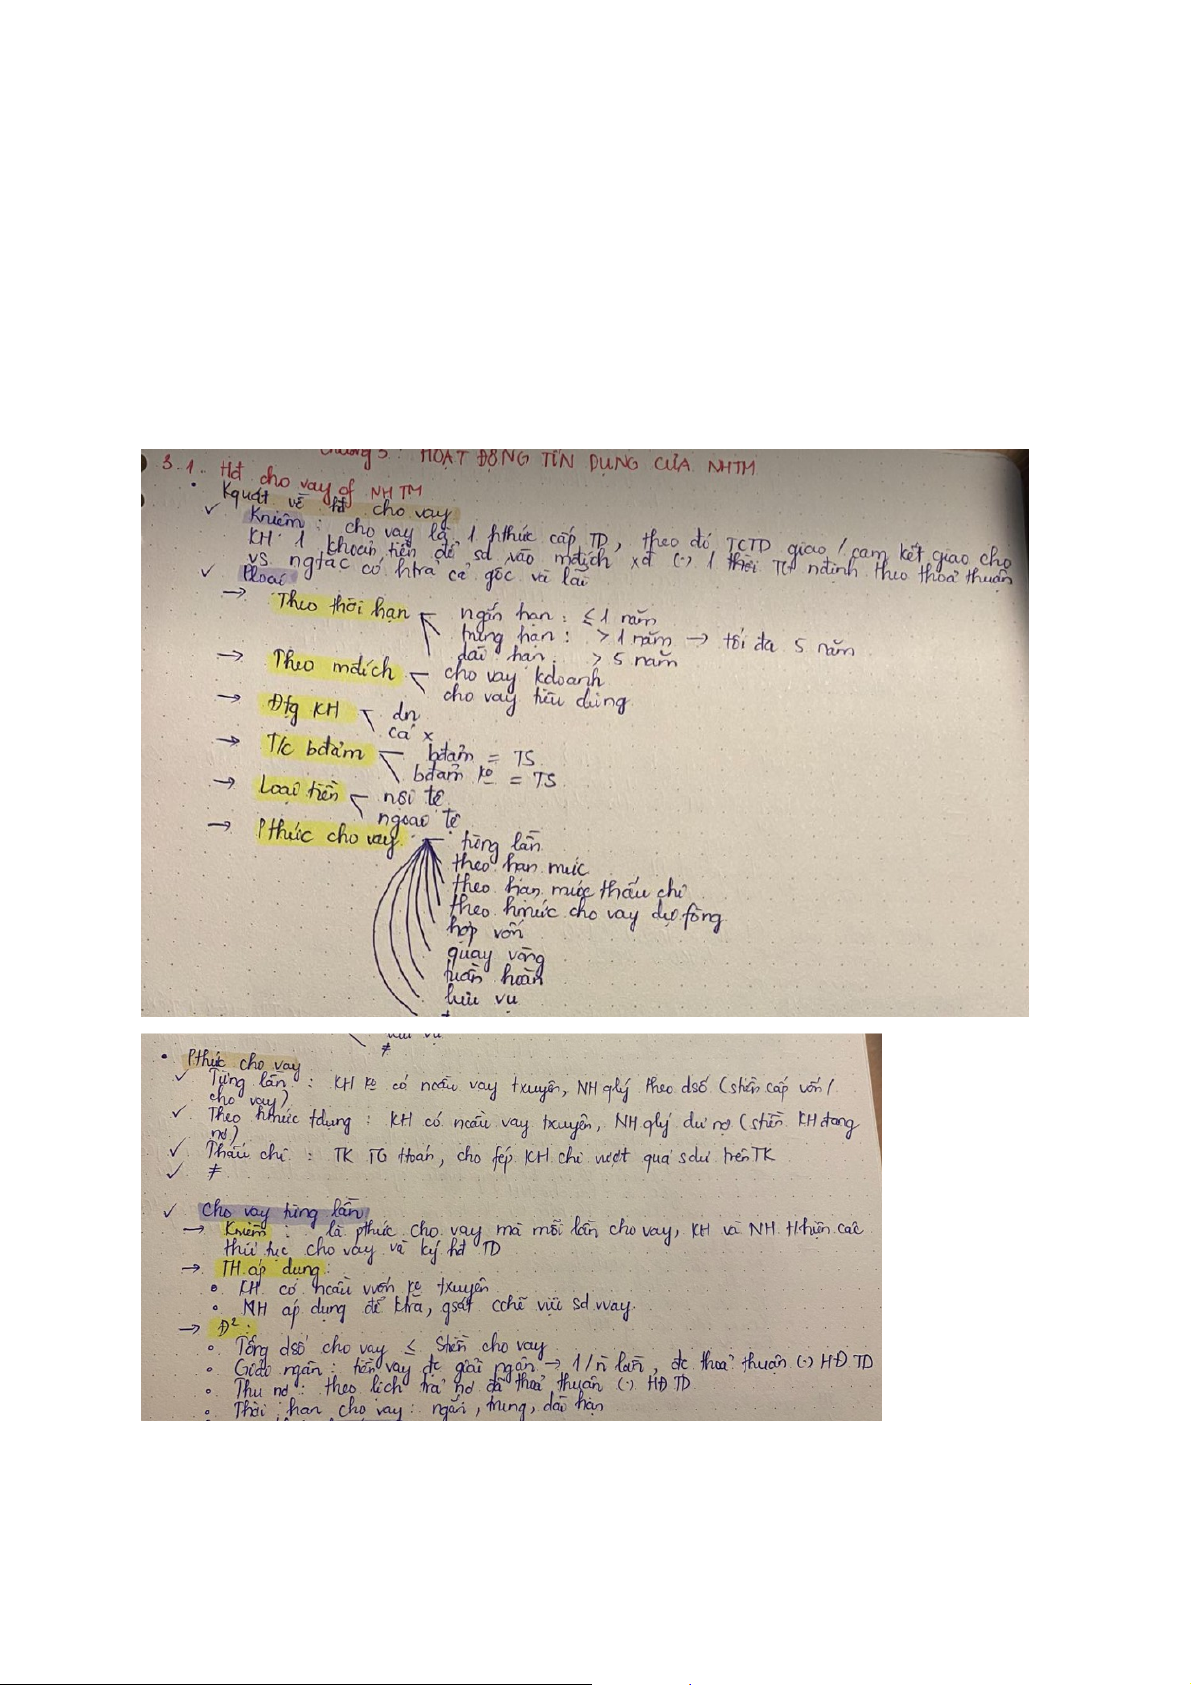 Chương 3 : HOẠT ĐỘNG TÍN DỤNG CỦA NHTM
3.1. Hđ cho vay of NHTM
• Kquát về hđ cho vay
✓ Kniệm : cho vay là 1 hthức cấp TD, theo đó TCTD giao / cam kết giao cho
KH 1 khoản tiền để sd vào mđích xđ (.) 1 thời TG nđịnh theo thoả thuận
vs ngtắc có htrả cả gốc và lãi
✓ Ploại
→ Theo thời hạn
ngắn hạn : ≤ 1 năm
trung hạn : > 1 năm → tối đa 5 năm
dài hạn : > 5 năm
→ Theo mđích
cho vay kdoanh
cho vay tiêu dùng
→ Đtg KH
dn
cá x
→ T/c bđảm
bđảm = TS
bđảm ko = TS
→ Loại tiền
nội tệ
ngoại tệ
→ Pthức cho vay
từng lần
theo hạn mức
theo hạn mức thấu chi
theo hmức cho vay dự fòng
hợp vốn
quay vòng
tuần hoàn
lưu vụ
≠
• Pthức cho vay
✓ Từng lần : KH ko có ncầu vay txuyên, NH qlý theo dsố (stiền cấp vốn /
cho vay)
✓ Theo hmức tdụng : KH có ncầu vay txuyên, NH qlý dư nợ (stiền KH đang
nợ)
✓ Thấu chi : TK TG ttoán, cho fép KH chi vượt quá sdư trên TK
✓ ≠
✓ Cho vay từng lần
→ Kniệm : là pthức cho vay mà mỗi lần cho vay, KH và NH thiện các
thủ tục cho vay và ký hđ TD
→ TH áp dụng :
∘ KH có ncầu vvốn ko txuyên
∘ NH áp dụng để ktra, gsát cchẽ việc sd vvay.
→ Đ² :
∘ Tổng dsố cho vay ≤ Stiền cho vay
∘ Giải ngân : tiền vay đc giải ngân → 1/n lần, đc thoả thuận (.) HĐ TD
∘ Thu nợ : theo lịch trả nợ đã thoả thuận (.) HĐ TD
∘ Thời hạn cho vay : ngắn, trung, dài hạn